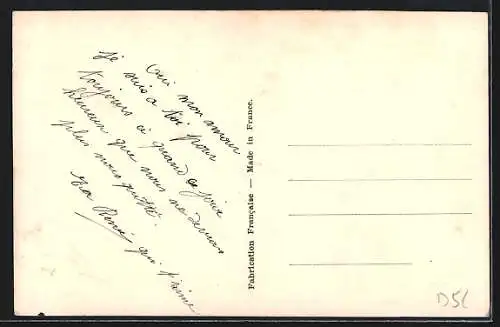 Oui mon amour
Je suis a toi pour
toujours a quand ce jour
heureux que nous ne devrons
plus nous quitté.
ta René qui t'aime
Fabrication Française — Made in France.
D5L